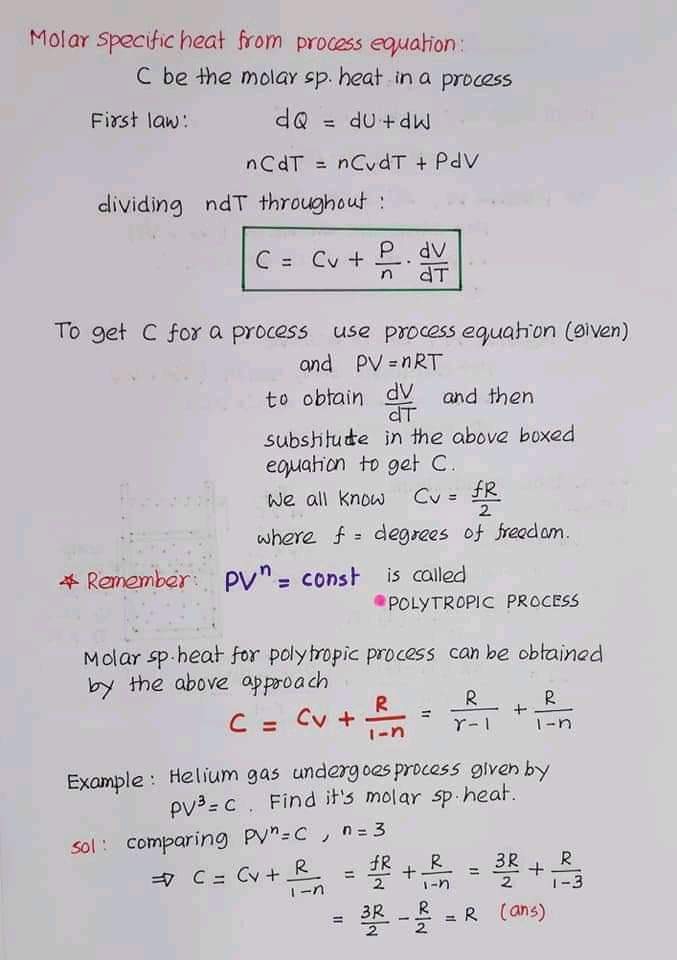 Molar specific heat from process equation:
C be the molar sp. heat in a process
First law: dQ = dU + dW
nCdT = nCvdT + PdV
dividing ndT throughout :
C = Cv + P/n . dV/dT
To get C for a process use process equation (given)
and PV = nRT
to obtain dV/dT and then
substitute in the above boxed
equation to get C.
We all know Cv = fR/2
where f = degrees of freedom.
* Remember: PVⁿ = const is called
POLYTROPIC PROCESS
Molar sp. heat for polytropic process can be obtained
by the above approach
C = Cv + R/1-n = R/r-1 + R/1-n
Example : Helium gas undergoes process given by
PV³ = C . Find it's molar sp. heat.
Sol : comparing PVⁿ = C , n = 3
⇒ C = Cv + R/1-n = fR/2 + R/1-n = 3R/2 + R/1-3
= 3R/2 - R/2 = R (ans)